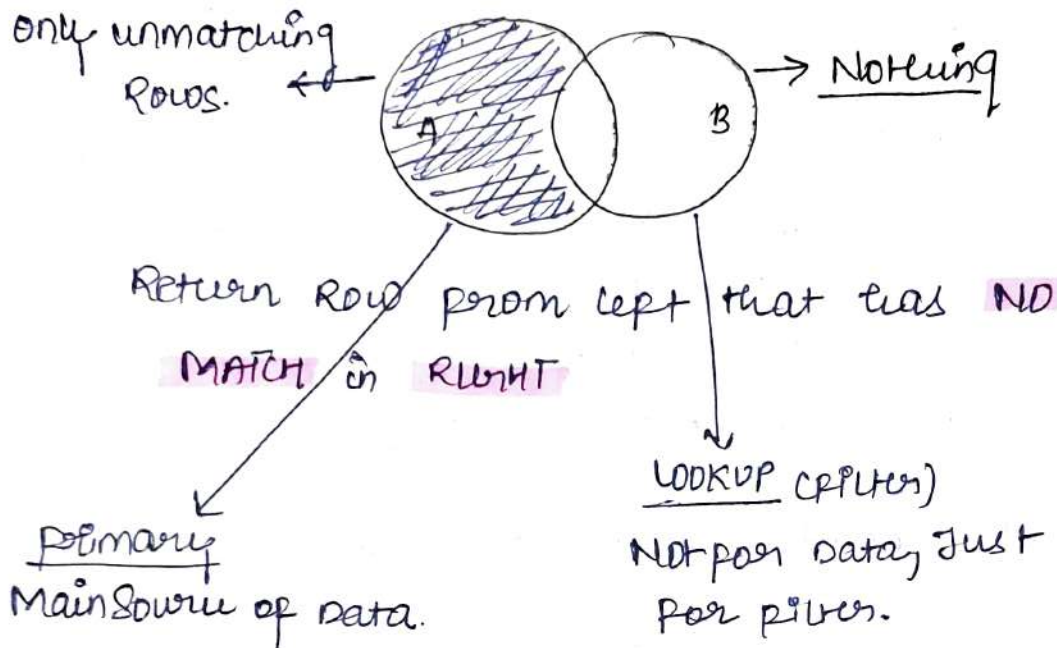 Only unmatching
Rows.
A
B
Nothing
Return Row from left that has NO
MATCH in RIGHT
Primary
Main Source of Data.
LOOKUP (Filter)
Not for Data, Just
For filter.